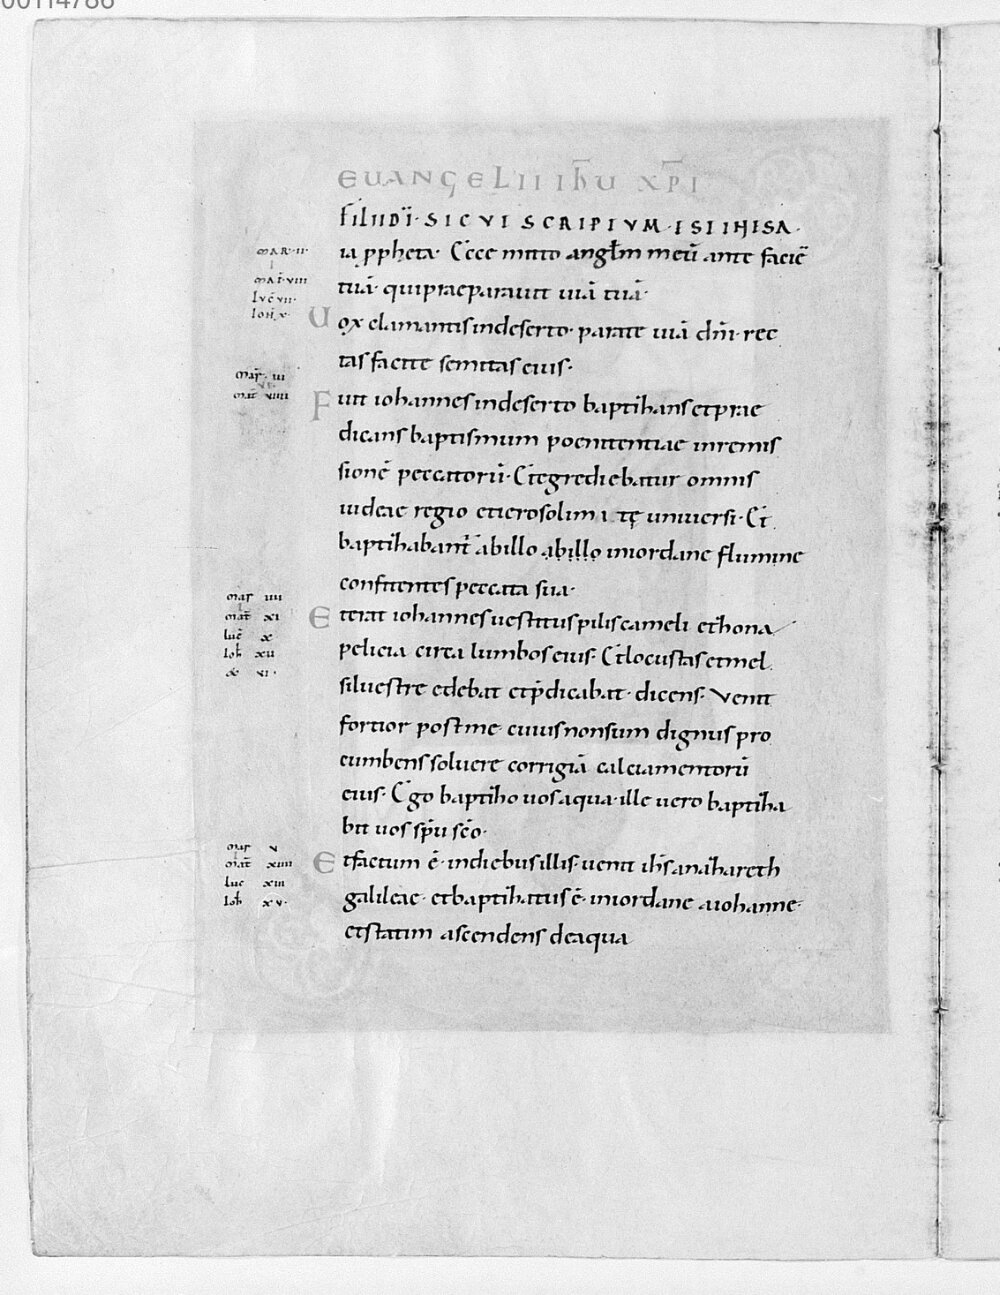 00114786
EUANGELII IHU XPI
filii dī · SICUT SCRIPTUM · EST IN ESA
ia ppheta · Ecce mitto angłm meū ante faciē
tuā · qui praeparauit uiā tuā ·
Uox clamantis indeserto · parate uiā dn̄i · rec
tas facite semitas eius ·
Fuit iohannes indeserto baptihans et prae
dicans baptismum poenitentiae in remis
sionē peccatorū · Et egrediebatur omnis
iudeae regio et ierosolimitę uniuersi · Et
baptihabant̄ abillo abillo in iordane flumine
confitentes peccata sua ·
Et erat iohannes uestitus pilis cameli et hona
pelicia circa lumbos eius · Et locustas et mel
siluestre edebat et p̄dicabat · dicens · Venit
fortior post me · cuius non sum dignus pro
cumbens soluere corrigiā calciamentorū
eius · Ego baptiho uos aqua · ille uero baptiha
bit uos sp̄u sc̄o ·
Et factum ē · in diebus illis · uenit ih̄s anahareth
galileae · et baptihatus ē · in iordane aiohanne ·
et statim ascendens deaqua
MAR · II ·
MAT̄ · VIII
LUC̄ VII ·
IOH̄ X ·
mar̄ · III
mat̄ VIIII
mar IIII
mat̄ XI
luc̄ X
Ioh̄ XII
& VI ·
mar V
mat̄ XIIII
luc XIII
Ioh̄ XV ·